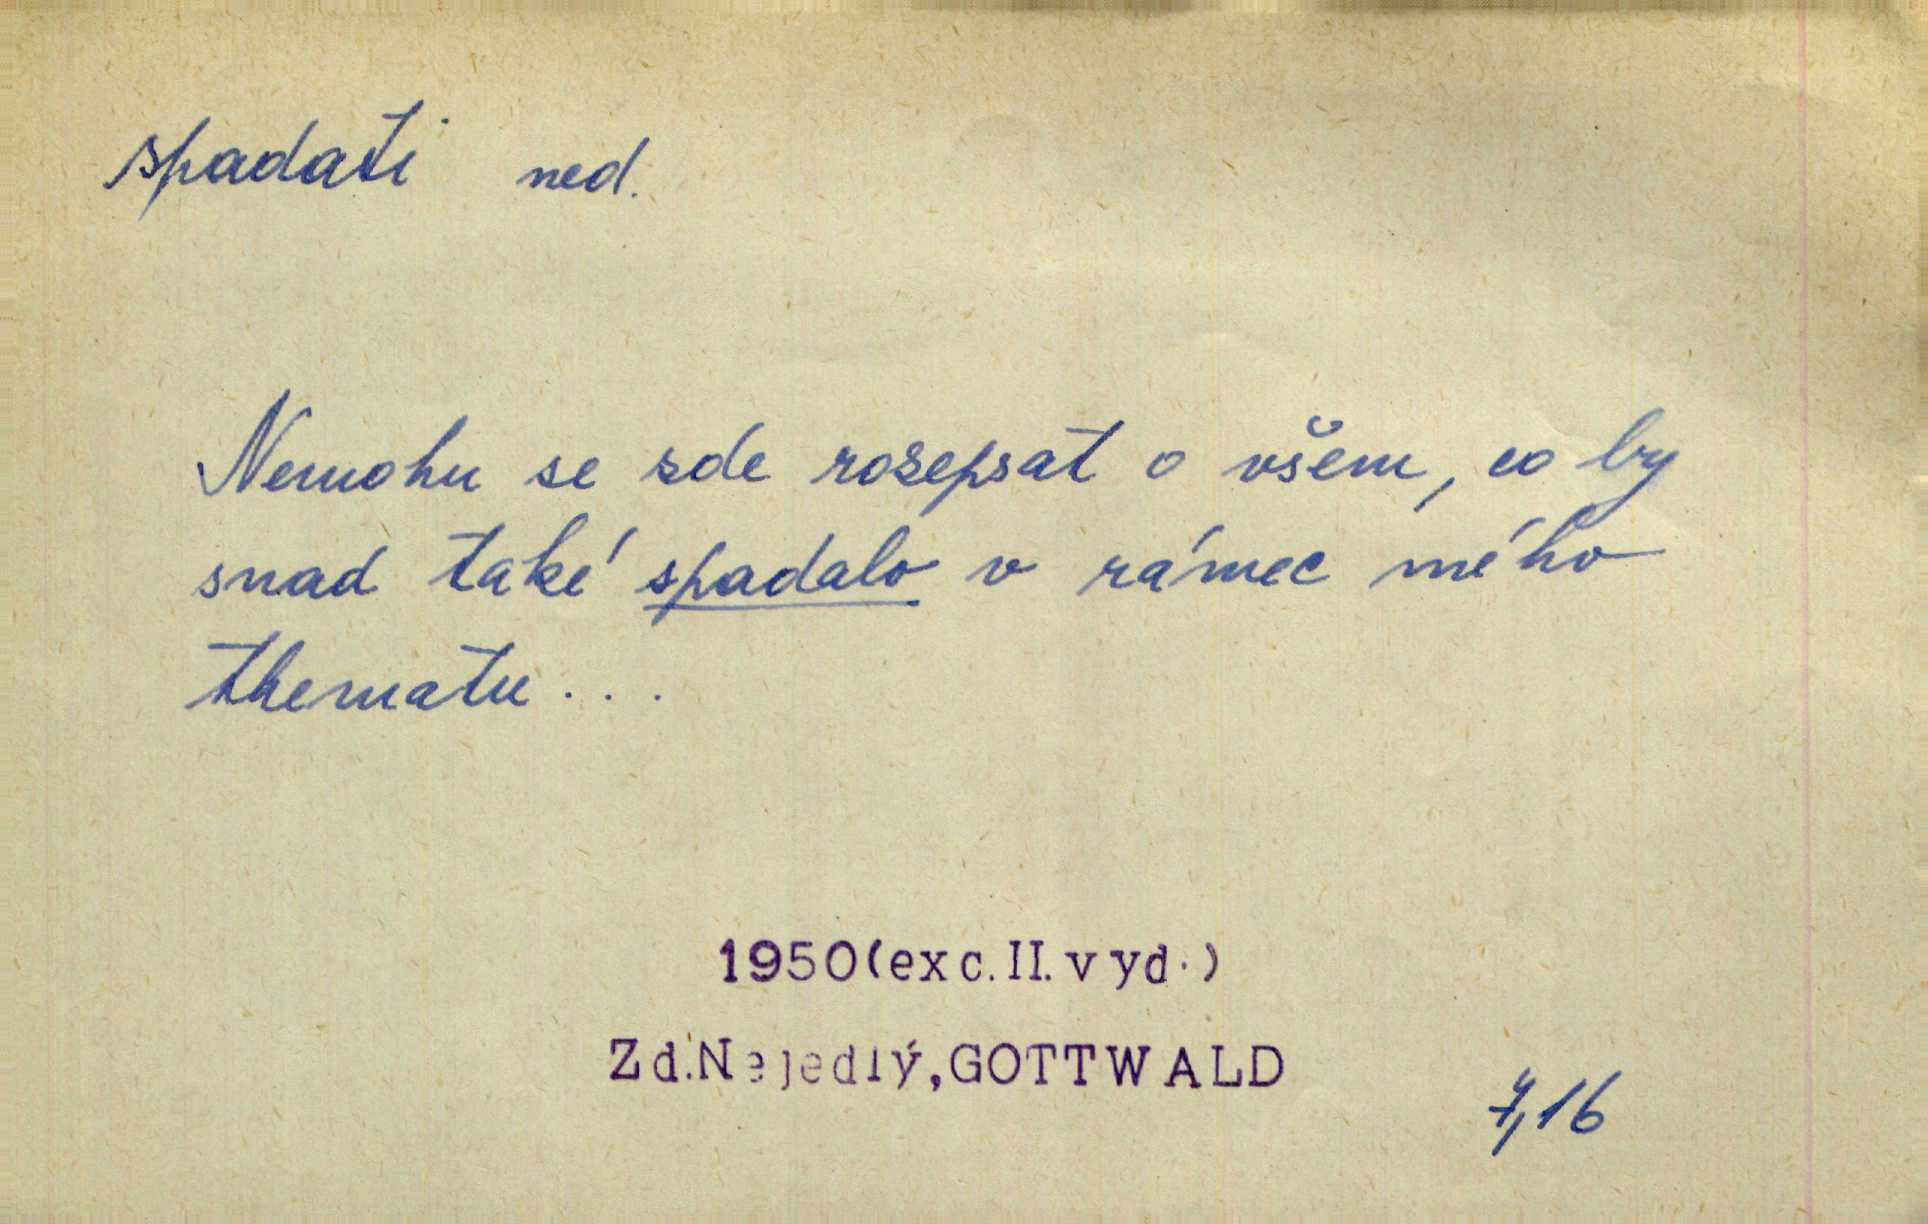 spadati ned.
Nemohu se zde rozepsat o všem, co by
snad také spadalo v rámec mého
thematu...
1950(exc.II.vyd.)
Zd.Nejedlý,GOTTWALD
7,16